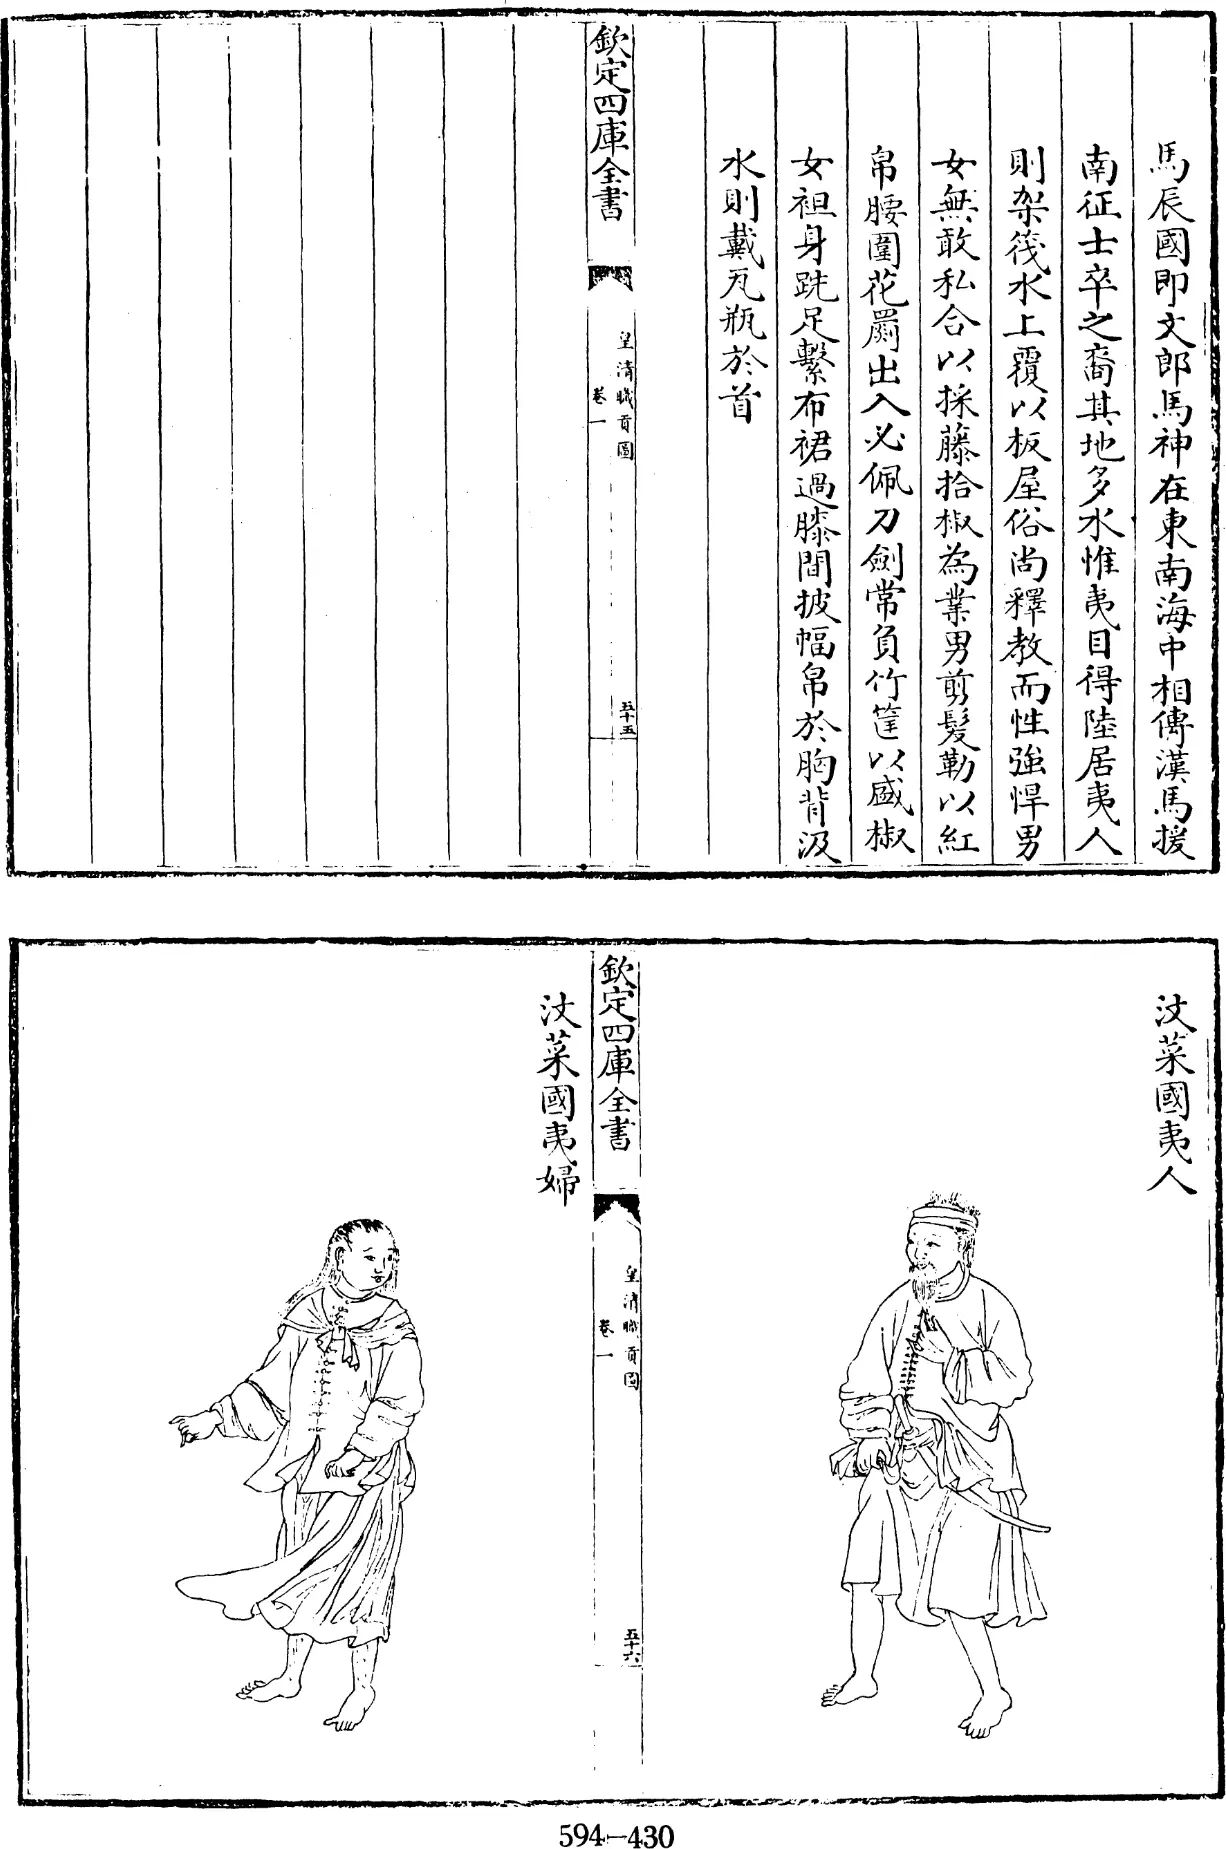 馬辰國即文郎馬神在東南海中相傳漢馬援
南征士卒之裔其地多水惟夷目得陸居夷人
則架筏水上覆以板屋俗尚釋教而性強悍男
女無敢私合以採藤拾椒為業男剪髮勒以紅
帛腰圍花罽出入必佩刀劍常負竹筐以盛椒
女袒身跣足繫布裙過膝間披幅帛於胸背汲
水則戴瓦瓶於首
欽定四庫全書
皇清職貢圖
卷一
五十五
汶萊國夷人
欽定四庫全書
皇清職貢圖
卷一
五十六
汶萊國夷婦
594-430